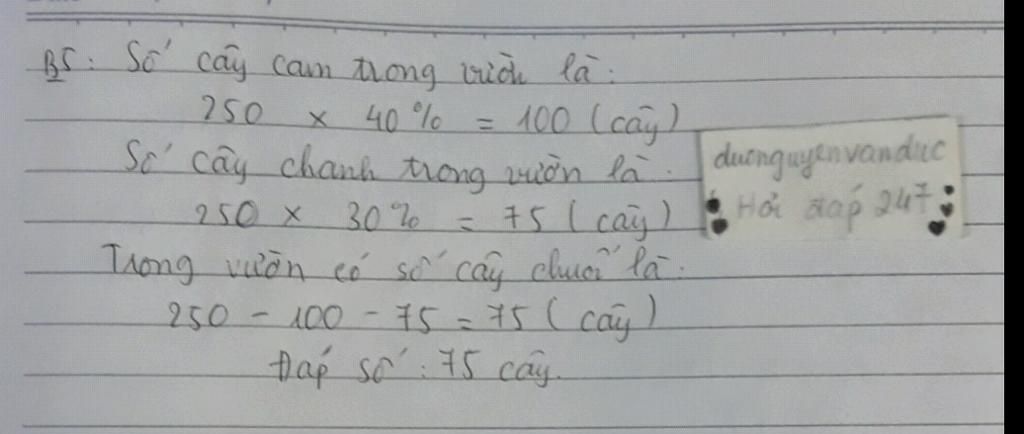 B5: Số cây cam trong vườn là:
250 × 40% = 100 (cây)
Số cây chanh trong vườn là:
250 × 30% = 75 (cây)
Trong vườn có số cây chuối là:
250 - 100 - 75 = 75 (cây)
Đáp số: 75 cây.
duonguyenvanduc
Hỏi đáp 247